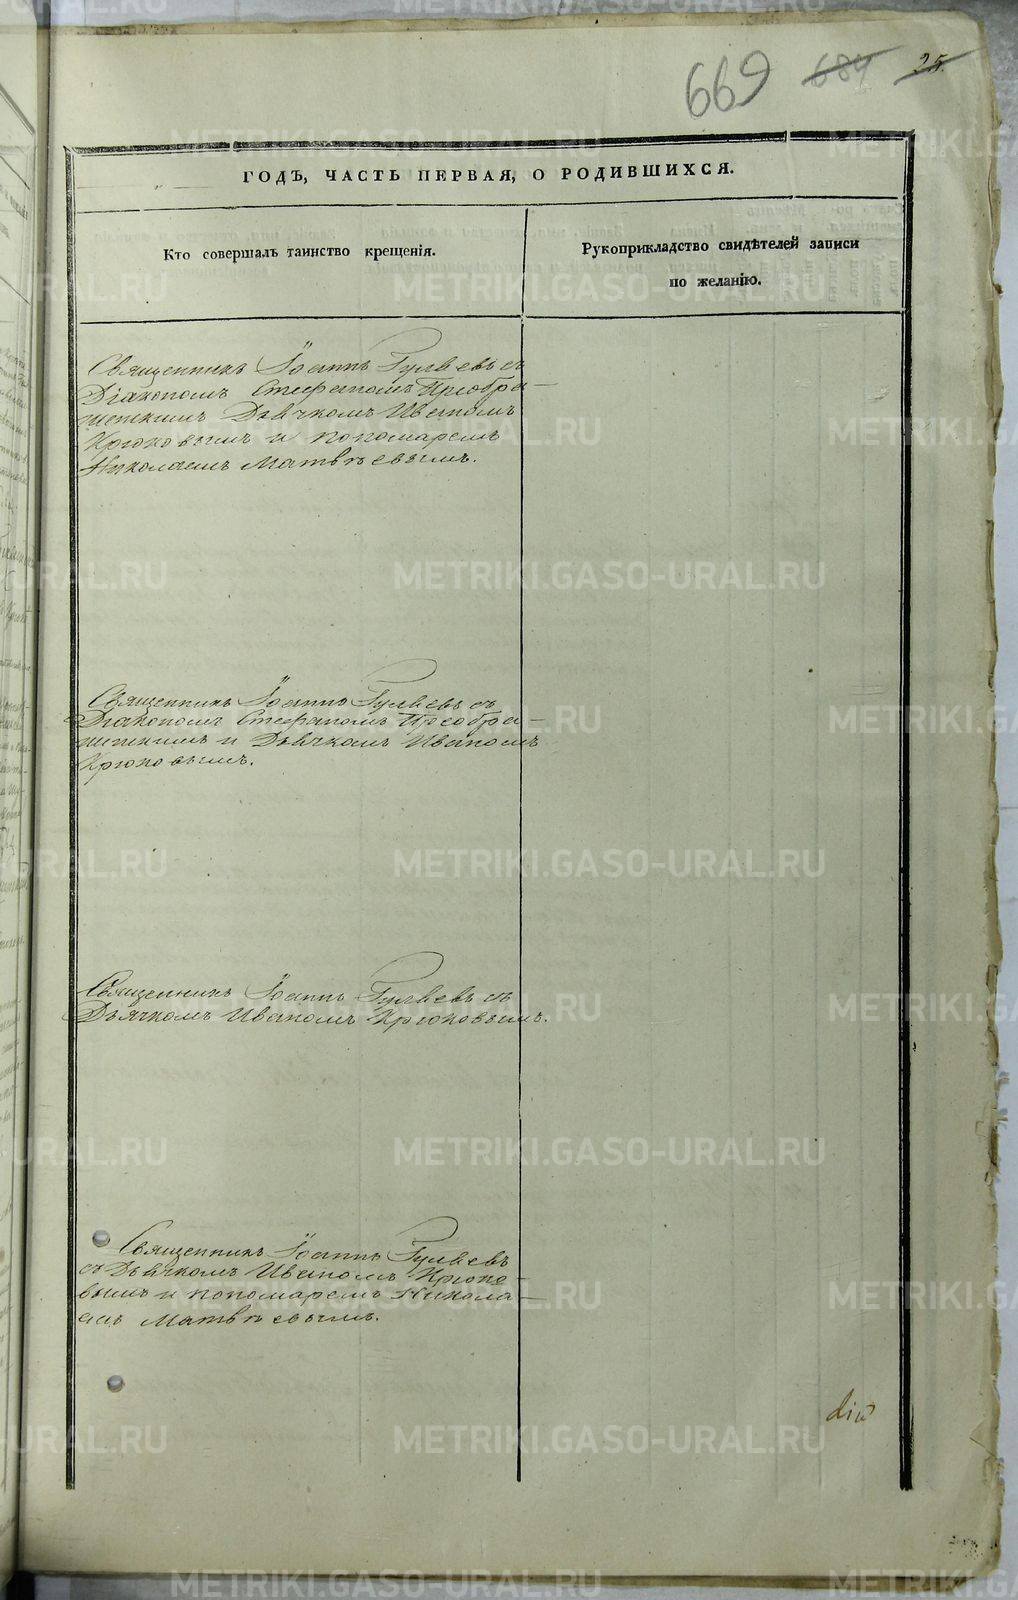 669 684 25.
ГОДЪ, ЧАСТЬ ПЕРВАЯ, О РОДИВШИХСЯ.
Кто совершалъ таинство крещенія.
Рукоприкладство свидѣтелей записи
по желанію.
Священникъ Іоаннъ Гуляевъ съ
Діакономъ Стефаномъ Преобра-
женскимъ Дьячкомъ Иваномъ
Крюковымъ и пономаремъ
Николаемъ Матвѣевымъ.
Священникъ Іоаннъ Гуляевъ съ
Діакономъ Стефаномъ Преобра-
женскимъ и Дьячкомъ Иваномъ
Крюковымъ.
Священникъ Іоаннъ Гуляевъ съ
Дьячкомъ Иваномъ Крюковымъ.
Священникъ Іоаннъ Гуляевъ
съ Дьячкомъ Иваномъ Крюко-
вымъ и пономаремъ Никола-
емъ Матвѣевымъ.
METRIKI.GASO-URAL.RU